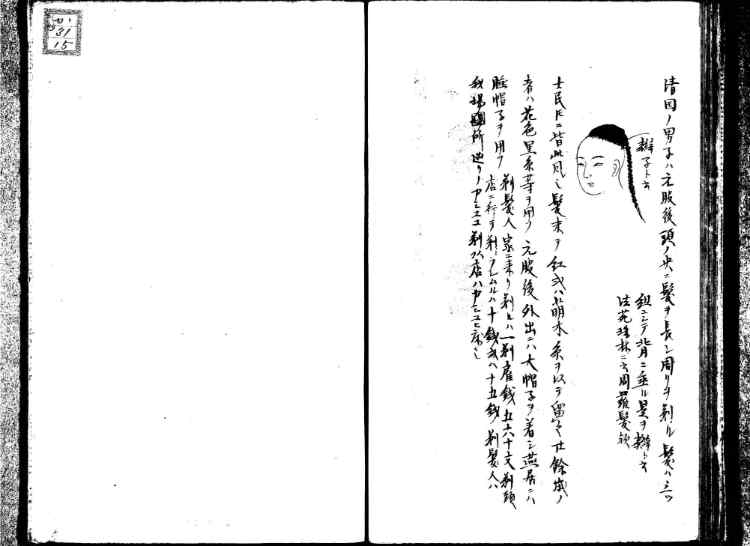 清国ノ男子ハ元服後頭ノ央ニ髪ヲ長シ周リヲ剃ル髪ハ三ツ
組ニシテ背ニ垂ル是ヲ辮ト云
法苑珠林ニ云周羅髪
辮子ト云
士民トモニ皆此風也髪末ヲ紅或ハ萌木糸ヲ以テ留ル廿餘歳ノ
者ハ花色黒糸等ヲ用フ元服後外出ニハ大帽子ヲ着シ燕居ニハ
睡帽子ヲ用フ
剃髪人家ニ来リ剃レハ一剃雇銭五六十文剃頭
店ニ行テ剃ラシムルハ十銭或ハ十五銭剃髪人ハ
我場所廻リノ
31
15